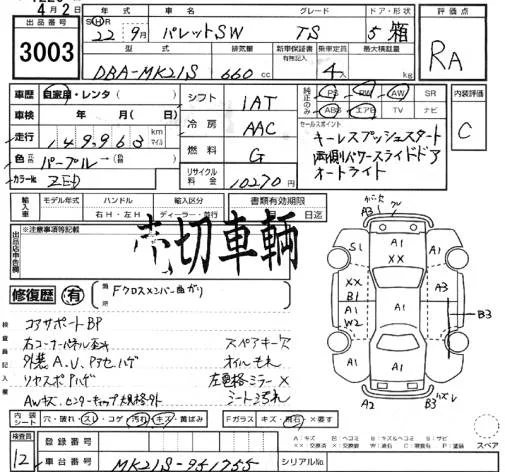 4月2日
出品番号 3003
年式 22年 9月
車名 パレットSW
グレード TS
ドア・形状 5 箱
評価点 RA
型式 DBA-MK21S
排気量 660 cc
新車保証書 有無記入
乗車定員 4人
最大積載量 kg
車歴 自家用・レンタ( )
車検 年 月( )日
走行 149963 km マイル
色 パープル→( )
カラーNo. ZED
シフト IAT
冷房 AAC
燃料 G
リサイクル料金 10270円
純正のみ PS PW AW SR
ABS エアB TV ナビ
内装評価 C
セールスポイント
キーレスプッシュスタート
両側パワースライドドア
オートライト
輸入車 モデル年式 ハンドル 右H・左H 輸入区分 ディーラー・並行
書類有効期限 月 日迄
出品店申告欄 ※注意事項等記載
売切車輌
修復歴 有 箇所
Fクロスメンバー曲がり
検査員記入欄
コアサポートBP
右コーナーパネル歪み
スペアキー欠
外装A、U、Pアセハゲ
オイルもれ
リヤスポAハゲ
左電格ミラー×
AWキズ、センターキャップ規格外
シート汚れ
A3 A1 S1 A1 A1
XX
XX A1 A3
B1
A1 A1 B3
W2
A1 A1
A2 B3
内装シート 穴・破れ・スレ・コゲ 汚れ・キズ・黄ばみ
Fガラス キズ・飛石・×要す
スペア
検査員 12
登録番号
車台番号 MK21S-951755
シリアルNo.